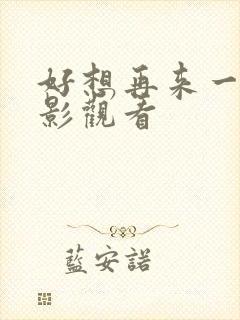 好想再来一
影觀看
藍安諾